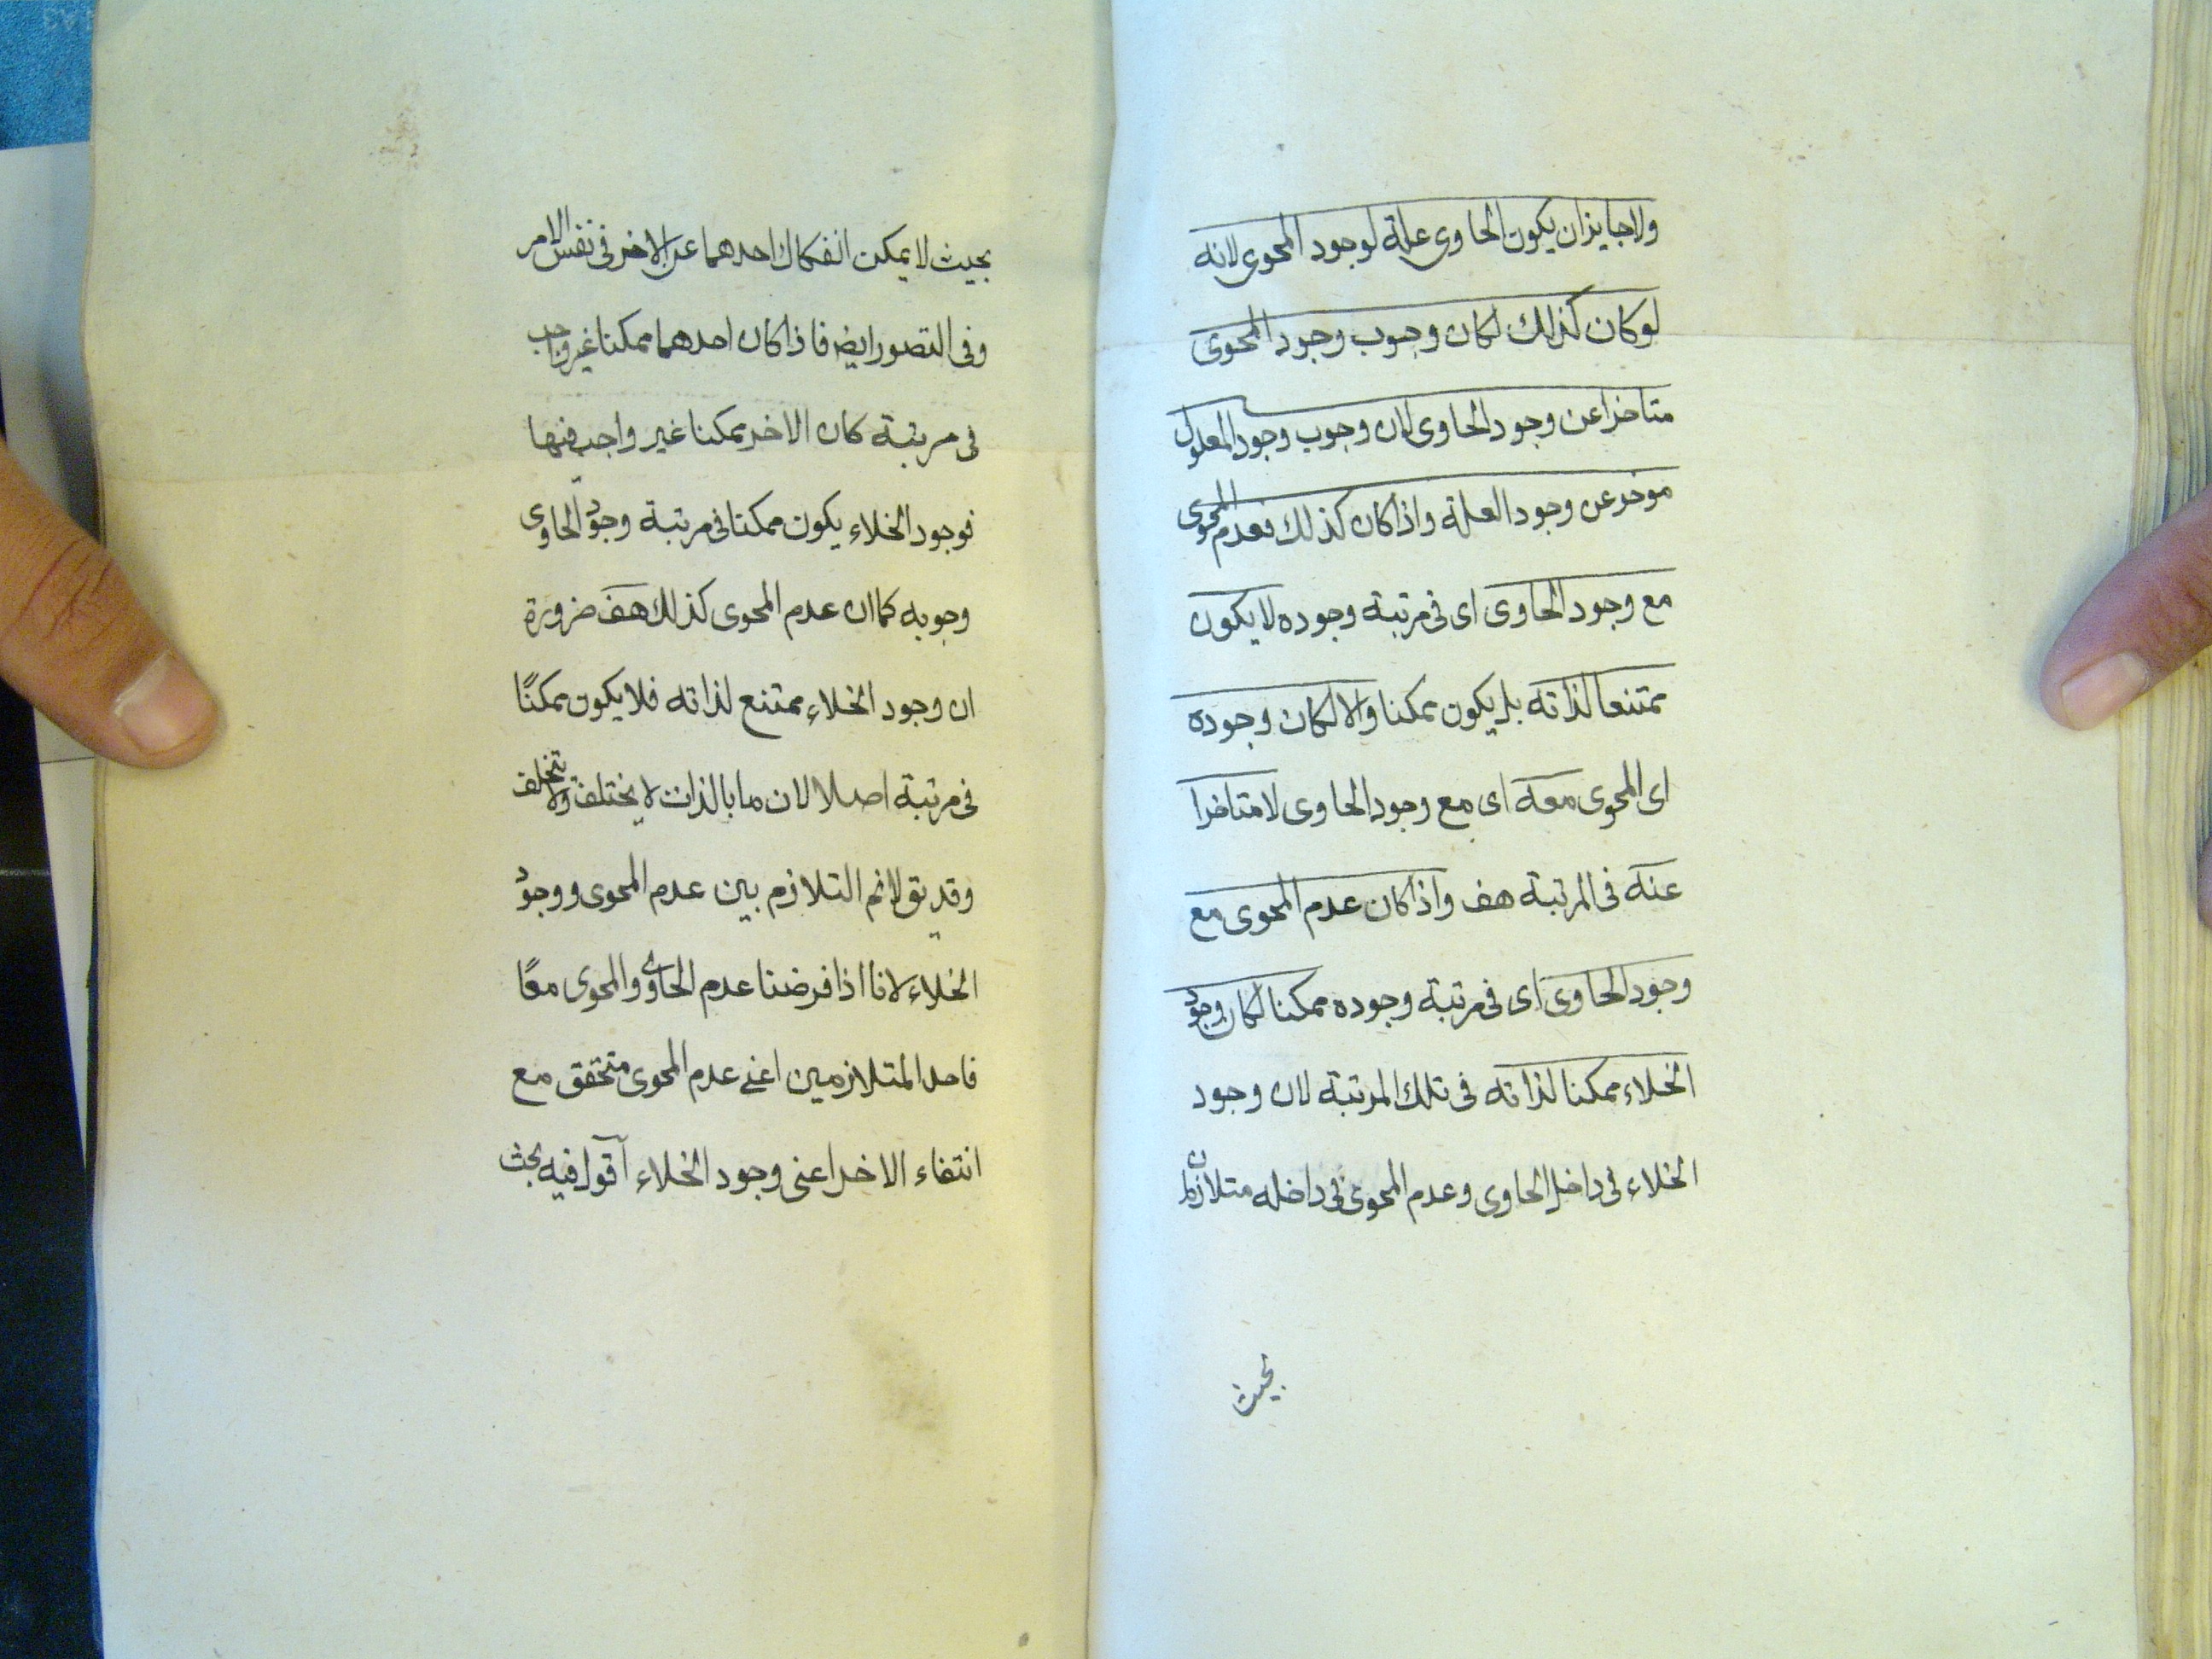 ولا جايز ان يكون الحاوى علة لوجود المحوى لانه
لوكان كذلك لكان وجوب وجود المحوى
متاخرا عن وجود الحاوى لان وجوب وجود المعلول
موخر عن وجود العلة واذا كان كذلك فعدم المحوى
مع وجود الحاوى اى فى مرتبة وجوده لا يكون
ممتنعا لذاته بل يكون ممكنا والا لكان وجوده
اى المحوى معه اى مع وجود الحاوى لا متاخرا
عنه فى المرتبة هف واذا كان عدم المحوى مع
وجود الحاوى اى فى مرتبة وجوده ممكنا لكان وجود
الخلاء ممكنا لذاته فى تلك المرتبة لان وجود
الخلاء فى داخل الحاوى وعدم المحوى فى داخله متلازمان
بحيث
بحيث لا يمكن انفكاك احدهما عن الاخر فى نفس الامر
وفى التصور ايض فاذا كان احدهما ممكنا غير واجب
فى مرتبة كان الاخر ممكنا غير واجب فيها
فوجود الخلاء يكون ممكنا فى مرتبة وجود الحاوى
وجوبه كما ان عدم المحوى كذلك هف ضرورة
ان وجود الخلاء ممتنع لذاته فلا يكون ممكنًا
فى مرتبة اصلا لان ما بالذات لا يختلف ولا تخلف
وقد يق لانم التلازم بين عدم المحوى ووجود
الخلاء لانا اذا فرضنا عدم الحاوى والمحوى معًا
فاحد المتلازمين اعنے عدم المحوى متحقق مع
انتفاء الاخر اعنى وجود الخلاء اقول فيه بحث